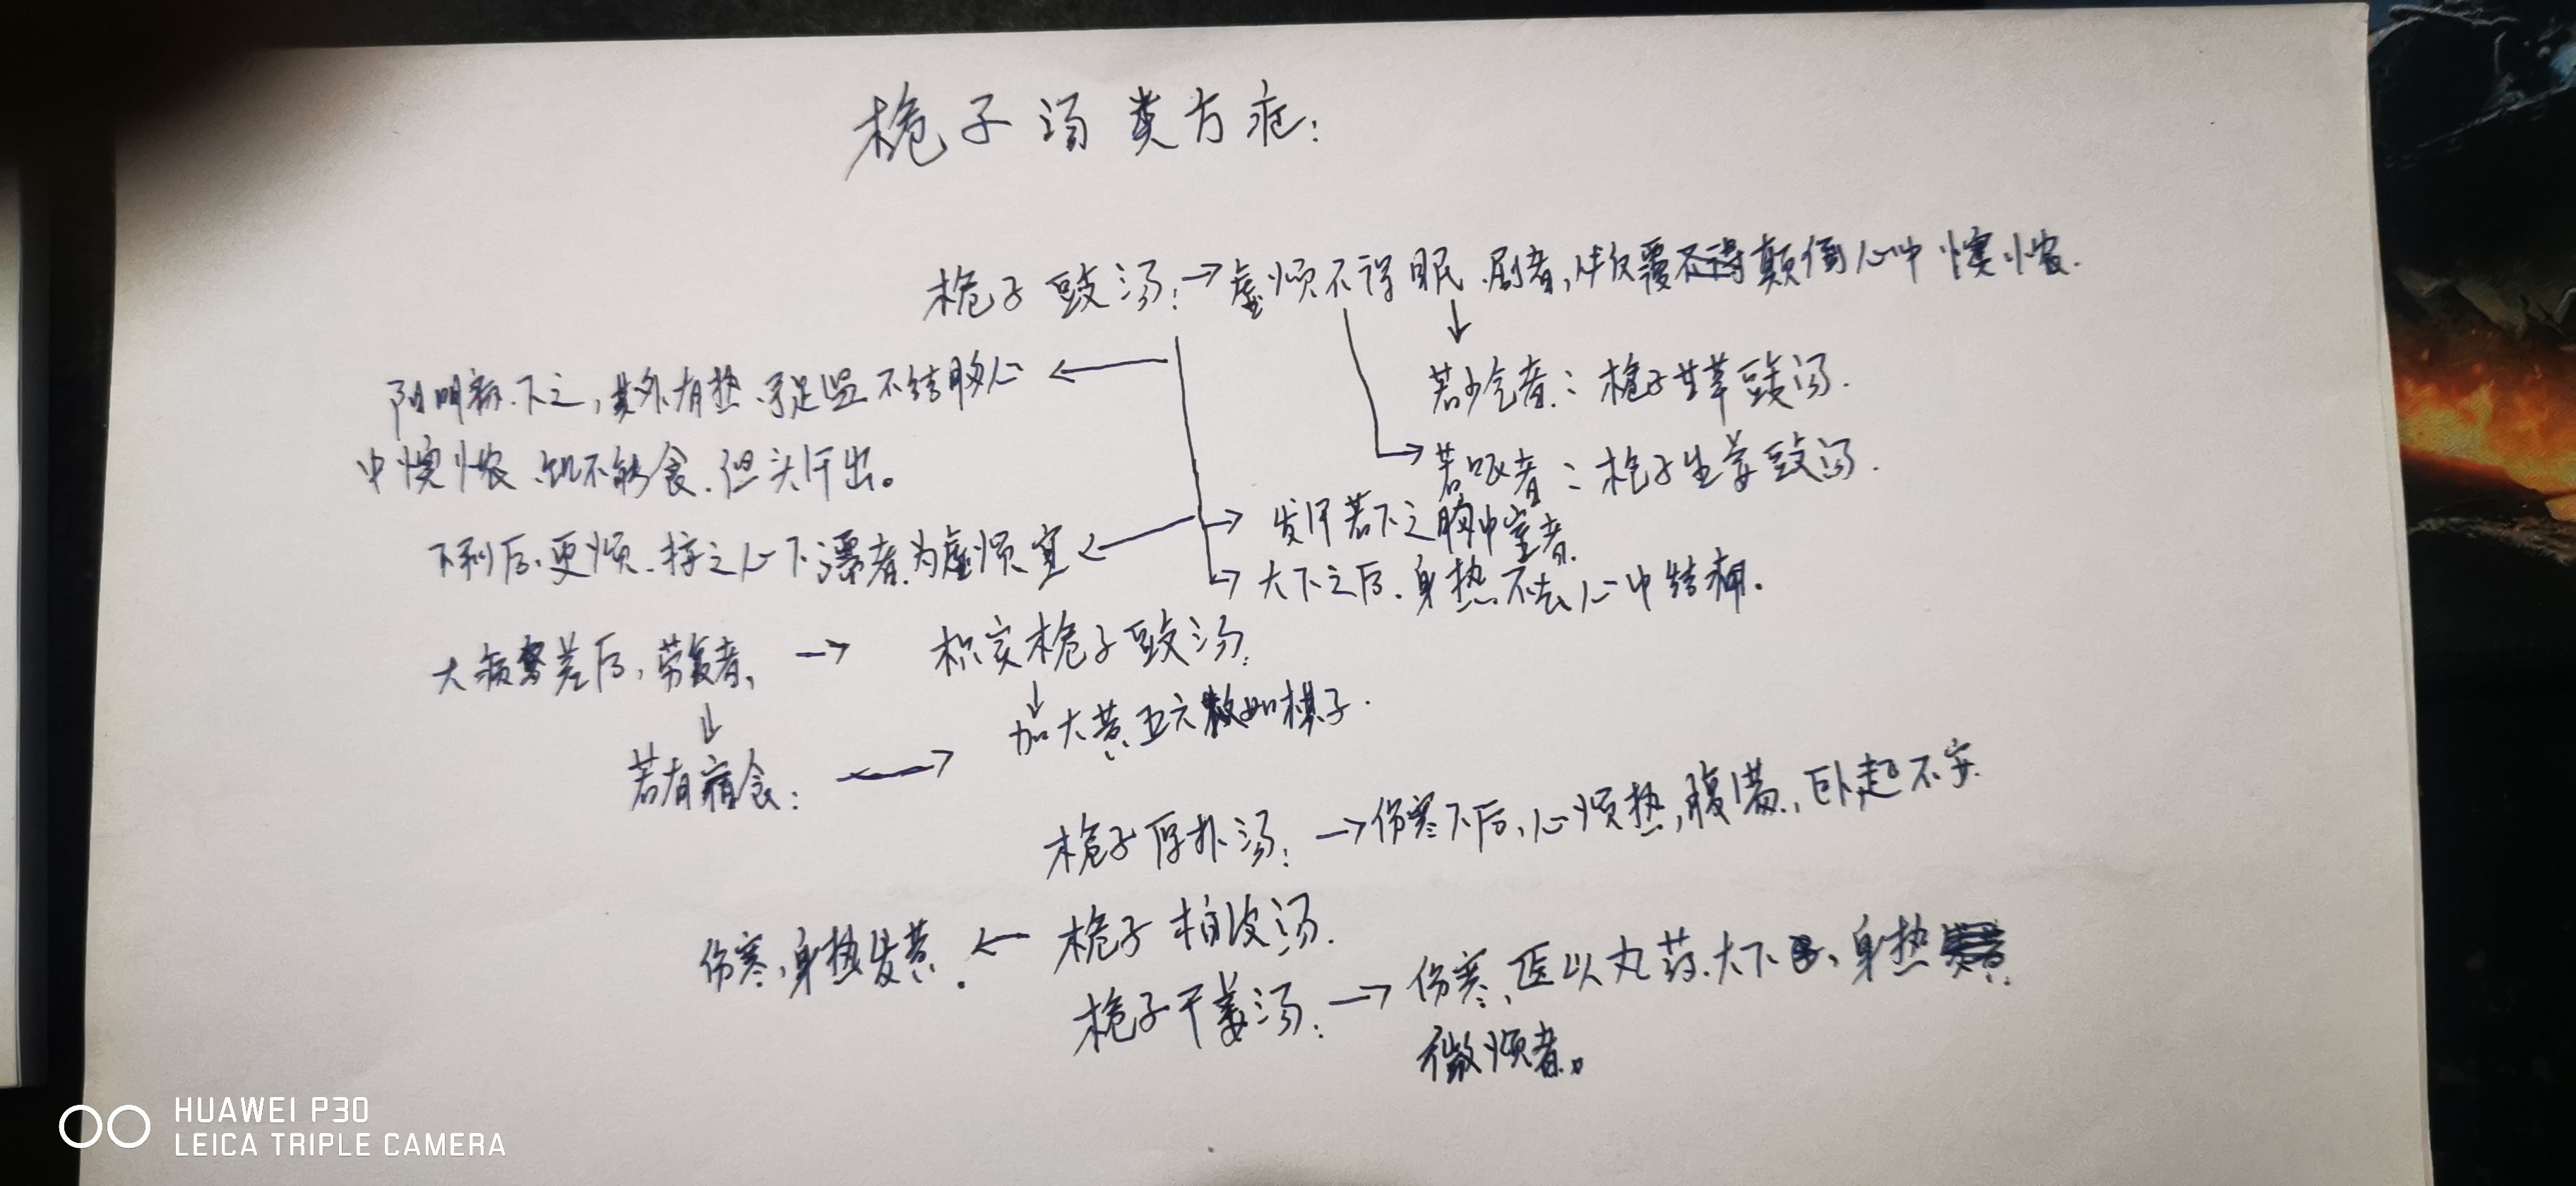 栀子汤类方症：
栀子豉汤：→虚烦不得眠、剧者，必反覆颠倒心中懊憹.
阳明病.下之，其外有热.手足温 不结胸心 ←
↓
若少气者：栀子甘草豉汤.
中懊憹、饥不能食.但头汗出。
→若呕者：栀子生姜豉汤.
→ 发汗若下之胸中窒者.
下利后、更烦.按之心下濡者.为虚烦宜←
→大下之后.身热不去心中结痛.
大病差后，劳复者， → 枳实栀子豉汤.
↓ ↓
加大黄五六枚如棋子.
若有宿食： →
栀子厚朴汤： →伤寒下后，心烦热，腹满，卧起不安.
伤寒，身热发黄. ← 栀子柏皮汤.
栀子干姜汤： → 伤寒，医以丸药.大下、身热
微烦者。
HUAWEI P30
LEICA TRIPLE CAMERA